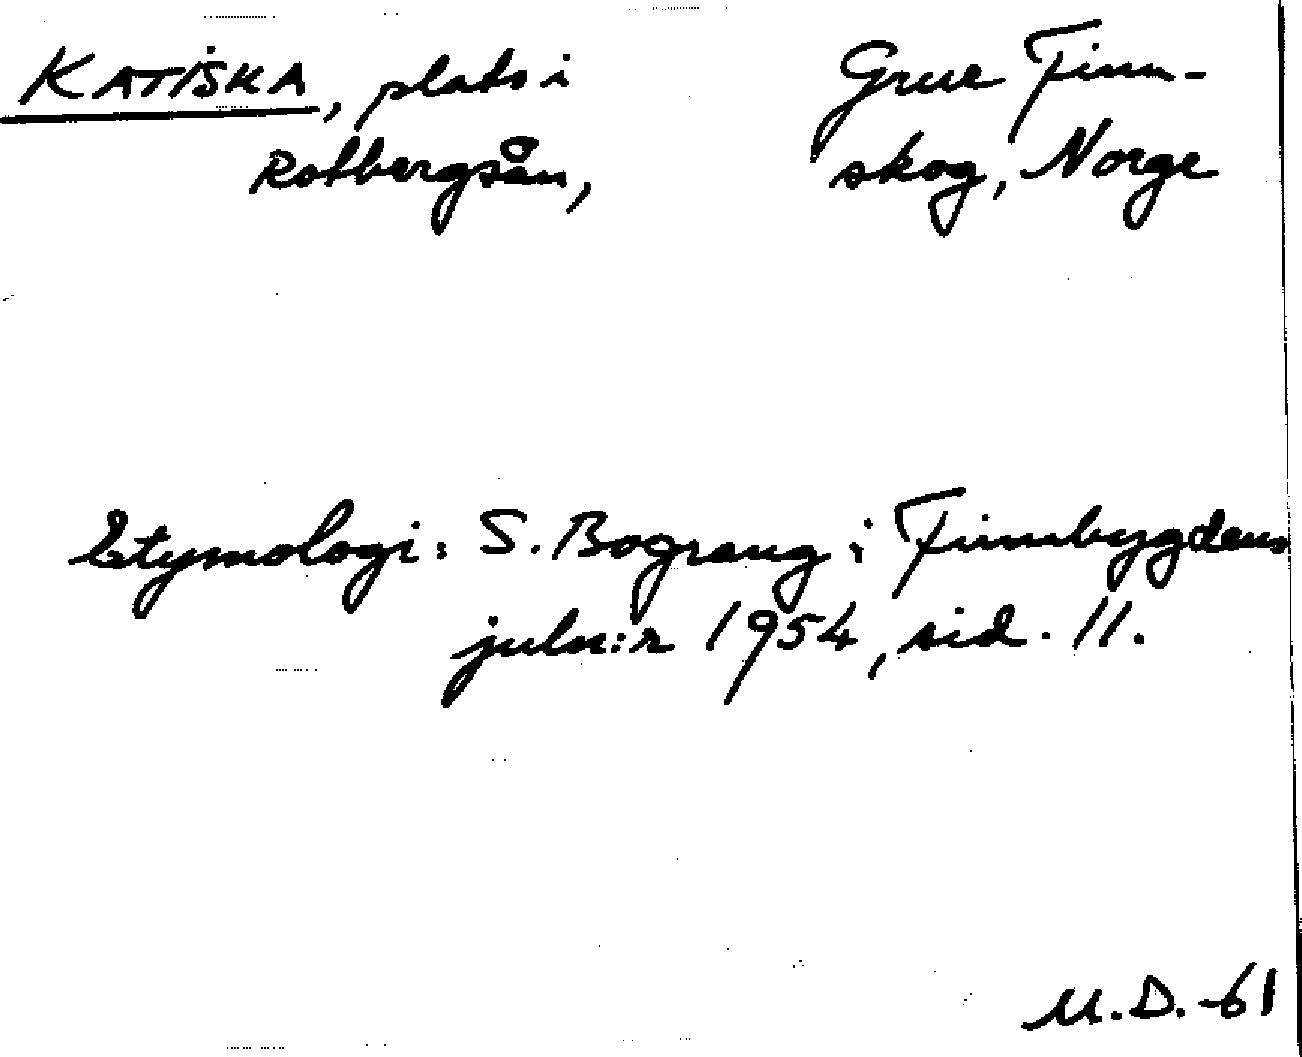 KATISKA, plats i
Rotbergsån,
Grue Finn-
skog, Norge
Etymologi: S. Bograng i Finnbygdens
juln:r 1954, sid. 11.
M.D.-61